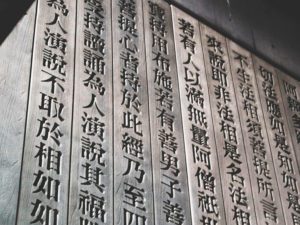 切法應如是
不生法相須菩提所言法
說即非法相是名法相
若有人以滿無量阿僧祇
持用布施若有善男子善
心者持於此經乃至四
受持讀誦為人演說其福
為人演說不取於相如如